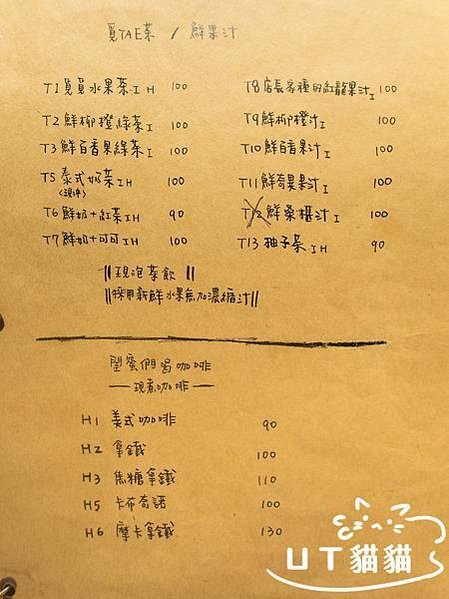 覓TAE茶 / 鮮果汁
T1 覓覓水果茶 I H 100
T2 鮮柳橙綠茶 I 100
T3 鮮百香果綠茶 I 100
T5 泰式奶茶 I H 100
(現沖)
T6 鮮奶+紅茶 I H 90
T7 鮮奶+可可 I H 100
T8 店長家種的紅龍果汁 I 100
T9 鮮柳橙汁 I 100
T10 鮮百香果汁 I 100
T11 鮮奇異果汁 I 100
T12 鮮桑椹汁 I 100
T13 柚子茶 I H 90
||現泡茶飲||
||採用新鮮水果無加濃縮汁||
閨蜜們唱咖啡
—現煮咖啡—
H1 美式咖啡 90
H2 拿鐵 100
H3 焦糖拿鐵 110
H5 卡布奇諾 100
H6 摩卡拿鐵 130
UT貓貓